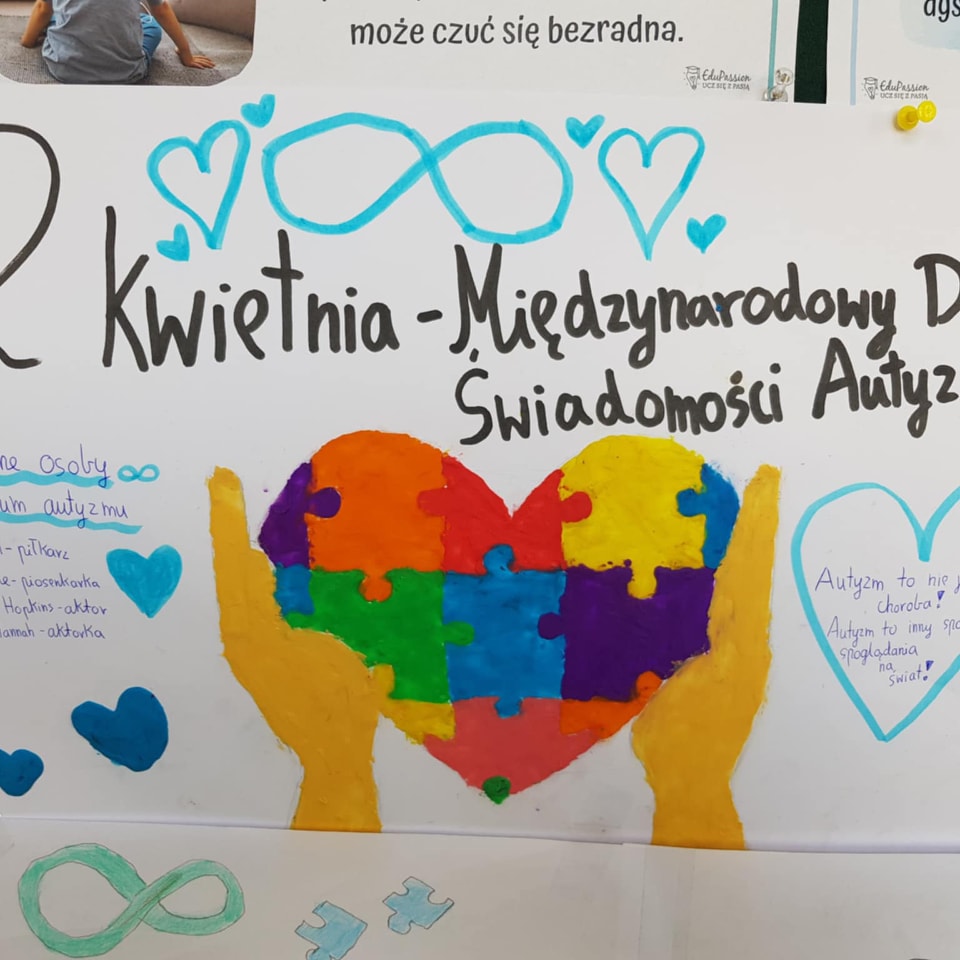 może czuć się bezradna.
EduPassion
UCZ SIĘ Z PASJĄ
EduPassion
UCZ SIĘ Z PASJĄ
2 Kwietnia - Międzynarodowy D
Świadomości Autyz
ne osoby
um autyzmu
- piłkarz
e - piosenkarka
Hopkins - aktor
annah - aktorka
Autyzm to nie
choroba!
Autyzm to inny spo
spoglądania
na
świat!